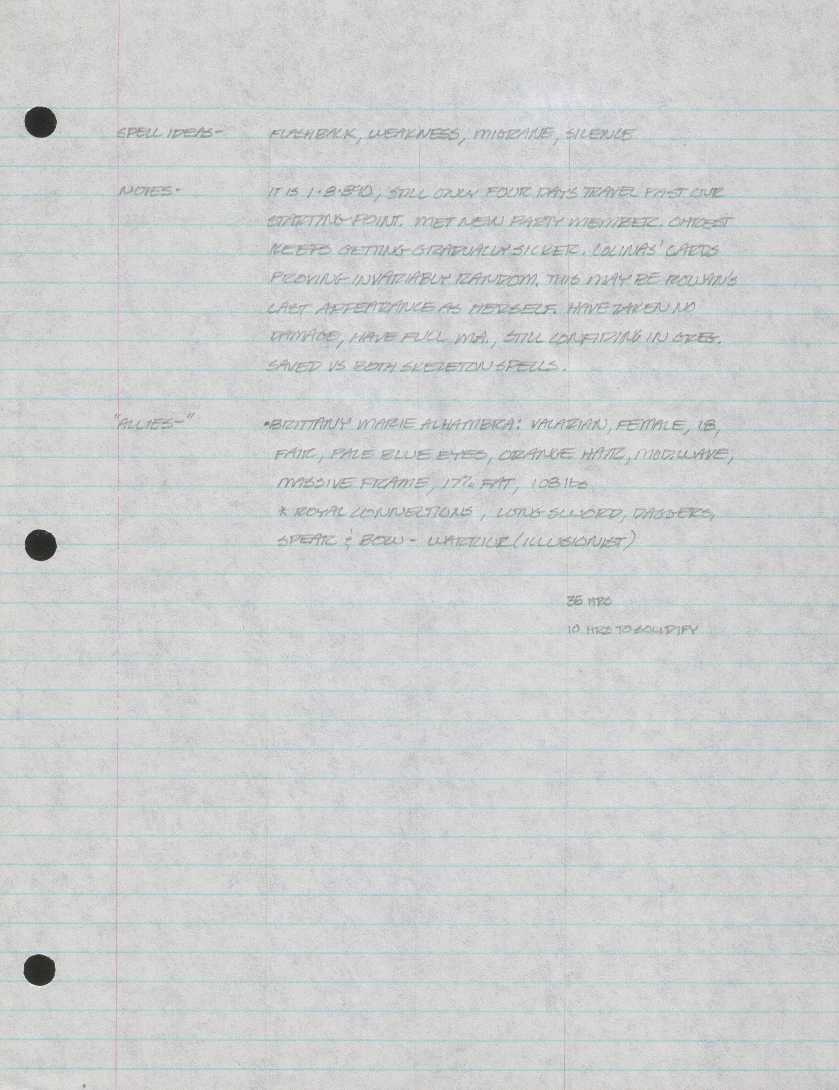 SPELL IDEAS- FLASHBACK, WEAKNESS, MIGRANE, SILENCE
NOTES- IT IS 1-8-890, STILL ONLY FOUR DAYS TRAVEL PAST OUR
STARTING POINT. MET NEW PARTY MEMBER.
KEEPS GETTING GRADUALLY SICKER. COLINAS' CARDS
PROVING INVARIABLY RANDOM. THIS MAY BE ROWAN'S
LAST APPEARANCE AS HERSELF. HAVE TAKEN NO
DAMAGE, HAVE FULL MA., STILL CONFIDING IN GREG.
SAVED VS BOTH SKELETON SPELLS.
"ALLIES-" •BRITTANY MARIE ALHAMBRA: VALARIAN, FEMALE, 18,
FAIR, PALE BLUE EYES, ORANGE HAIR, MOD. WAVE,
MASSIVE FRAME, 17% FAT, 108 lbs
* ROYAL CONNECTIONS, LONG SWORD, DAGGERS,
SPEAR & BOW - WARRIOR (ILLUSIONIST)
36 HRS
10 HRS TO SOLIDIFY